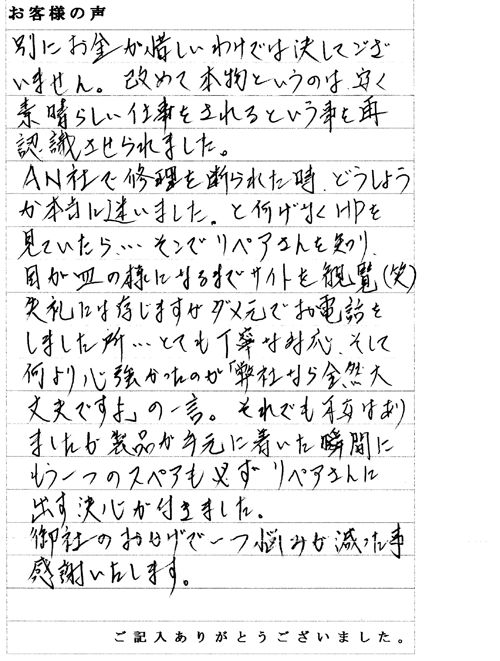 お客様の声
別にお金が惜しいわけでは決してござ
いません。改めて本物というのは、安く
素晴らしい仕事をされるという事を再
認識させられました。
AN社で修理を断られた時、どうしよう
か本当に迷いました。と何げなくHPを
見ていたら、… そこでリペアさんを知り、
目が皿の様になるまでサイトを観覧(笑)
失礼には存じますがダメ元でお電話を
しました所…とても丁寧な対応、そして
何より心強かったのが「弊社なら全然大
丈夫ですよ」の一言。それでも不安はあり
ましたが製品が手元に着いた瞬間に
もう一つのスペアも必ずリペアさんに
出す決心が付きました。
御社のおかげで一つ悩みが減った事
感謝いたします。
ご記入ありがとうございました。